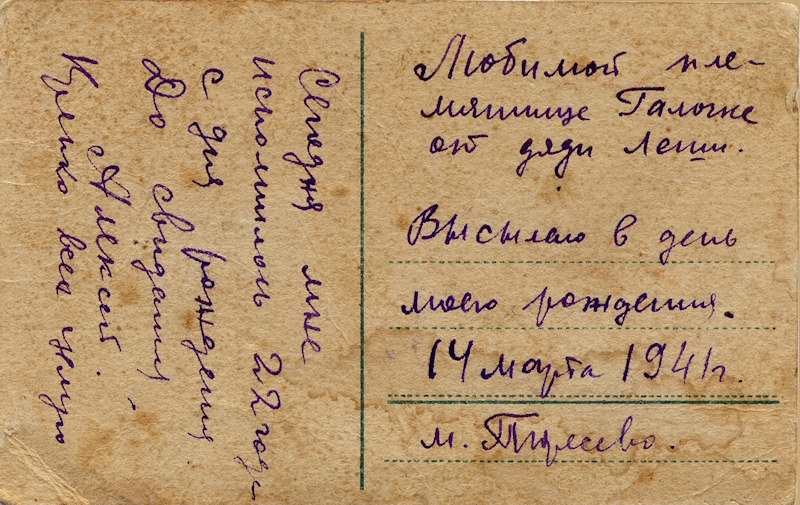 Любимой пле-
мяннице Галочке
от дяди Леши.
Высылаю в день
моего рождения.
14 марта 1941г.
м.
Сегодня мне
исполнилось 22 года
с дня рождения
До свидания,
Алексей.
Крепко всех целую